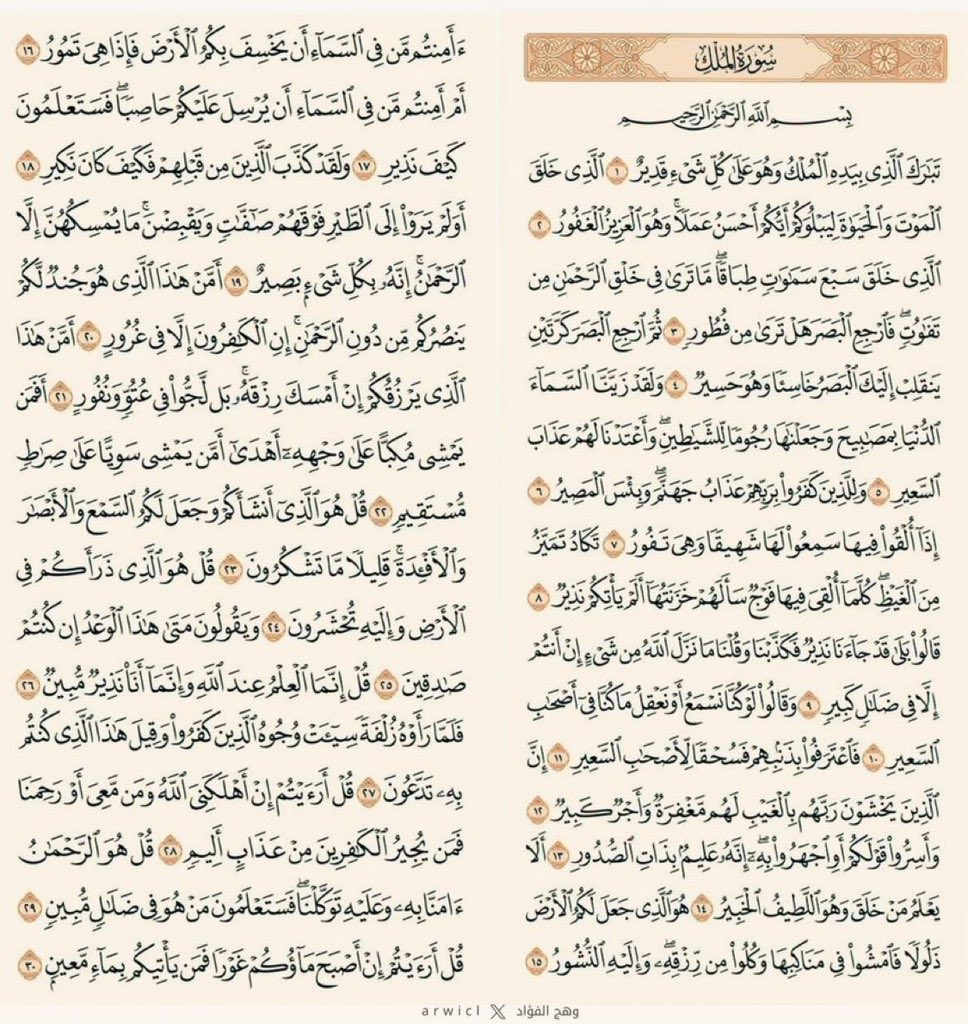 سُورَةُ المُلْكِ
بِسْمِ ٱللَّهِ ٱلرَّحْمَٰنِ ٱلرَّحِيمِ
تَبَٰرَكَ ٱلَّذِى بِيَدِهِ ٱلْمُلْكُ وَهُوَ عَلَىٰ كُلِّ شَىْءٍ قَدِيرٌ ١ ٱلَّذِى خَلَقَ
ٱلْمَوْتَ وَٱلْحَيَوٰةَ لِيَبْلُوَكُمْ أَيُّكُمْ أَحْسَنُ عَمَلًا ۚ وَهُوَ ٱلْعَزِيزُ ٱلْغَفُورُ ٢
ٱلَّذِى خَلَقَ سَبْعَ سَمَٰوَٰتٍ طِبَاقًا ۖ مَّا تَرَىٰ فِى خَلْقِ ٱلرَّحْمَٰنِ مِن
تَفَٰوُتٍ ۖ فَٱرْجِعِ ٱلْبَصَرَ هَلْ تَرَىٰ مِن فُطُورٍ ٣ ثُمَّ ٱرْجِعِ ٱلْبَصَرَ كَرَّتَيْنِ
يَنقَلِبْ إِلَيْكَ ٱلْبَصَرُ خَاسِئًا وَهُوَ حَسِيرٌ ٤ وَلَقَدْ زَيَّنَّا ٱلسَّمَآءَ
ٱلدُّنْيَا بِمَصَٰبِيحَ وَجَعَلْنَٰهَا رُجُومًا لِّلشَّيَٰطِينِ ۖ وَأَعْتَدْنَا لَهُمْ عَذَابَ
ٱلسَّعِيرِ ٥ وَلِلَّذِينَ كَفَرُوا۟ بِرَبِّهِمْ عَذَابُ جَهَنَّمَ ۖ وَبِئْسَ ٱلْمَصِيرُ ٦
إِذَآ أُلْقُوا۟ فِيهَا سَمِعُوا۟ لَهَا شَهِيقًا وَهِىَ تَفُورُ ٧ تَكَادُ تَمَيَّزُ
مِنَ ٱلْغَيْظِ ۖ كُلَّمَآ أُلْقِىَ فِيهَا فَوْجٌ سَأَلَهُمْ خَزَنَتُهَآ أَلَمْ يَأْتِكُمْ نَذِيرٌ ٨
قَالُوا۟ بَلَىٰ قَدْ جَآءَنَا نَذِيرٌ فَكَذَّبْنَا وَقُلْنَا مَا نَزَّلَ ٱللَّهُ مِن شَىْءٍ إِنْ أَنتُمْ
إِلَّا فِى ضَلَٰلٍ كَبِيرٍ ٩ وَقَالُوا۟ لَوْ كُنَّا نَسْمَعُ أَوْ نَعْقِلُ مَا كُنَّا فِىٓ أَصْحَٰبِ
ٱلسَّعِيرِ ١٠ فَٱعْتَرَفُوا۟ بِذَنۢبِهِمْ فَسُحْقًا لِّأَصْحَٰبِ ٱلسَّعِيرِ ١١ إِنَّ
ٱلَّذِينَ يَخْشَوْنَ رَبَّهُم بِٱلْغَيْبِ لَهُم مَّغْفِرَةٌ وَأَجْرٌ كَبِيرٌ ١٢
وَأَسِرُّوا۟ قَوْلَكُمْ أَوِ ٱجْهَرُوا۟ بِهِۦٓ ۖ إِنَّهُۥ عَلِيمٌۢ بِذَاتِ ٱلصُّدُورِ ١٣ أَلَا
يَعْلَمُ مَنْ خَلَقَ وَهُوَ ٱللَّطِيفُ ٱلْخَبِيرُ ١٤ هُوَ ٱلَّذِى جَعَلَ لَكُمُ ٱلْأَرْضَ
ذَلُولًا فَٱمْشُوا۟ فِى مَنَاكِبِهَا وَكُلُوا۟ مِن رِّزْقِهِۦ ۖ وَإِلَيْهِ ٱلنُّشُورُ ١٥
ءَأَمِنتُم مَّن فِى ٱلسَّمَآءِ أَن يَخْسِفَ بِكُمُ ٱلْأَرْضَ فَإِذَا هِىَ تَمُورُ ١٦
أَمْ أَمِنتُم مَّن فِى ٱلسَّمَآءِ أَن يُرْسِلَ عَلَيْكُمْ حَاصِبًا ۖ فَسَتَعْلَمُونَ
كَيْفَ نَذِيرِ ١٧ وَلَقَدْ كَذَّبَ ٱلَّذِينَ مِن قَبْلِهِمْ فَكَيْفَ كَانَ نَكِيرِ ١٨
أَوَلَمْ يَرَوْا۟ إِلَى ٱلطَّيْرِ فَوْقَهُمْ صَٰٓفَّٰتٍ وَيَقْبِضْنَ ۚ مَا يُمْسِكُهُنَّ إِلَّا
ٱلرَّحْمَٰنُ ۚ إِنَّهُۥ بِكُلِّ شَىْءٍۭ بَصِيرٌ ١٩ أَمَّنْ هَٰذَا ٱلَّذِى هُوَ جُندٌ لَّكُمْ
يَنصُرُكُم مِّن دُونِ ٱلرَّحْمَٰنِ ۚ إِنِ ٱلْكَٰفِرُونَ إِلَّا فِى غُرُورٍ ٢٠ أَمَّنْ هَٰذَا
ٱلَّذِى يَرْزُقُكُمْ إِنْ أَمْسَكَ رِزْقَهُۥ ۚ بَل لَّجُّوا۟ فِى عُتُوٍّ وَنُفُورٍ ٢١ أَفَمَن
يَمْشِى مُكِبًّا عَلَىٰ وَجْهِهِۦٓ أَهْدَىٰٓ أَمَّن يَمْشِى سَوِيًّا عَلَىٰ صِرَٰطٍ
مُّسْتَقِيمٍ ٢٢ قُلْ هُوَ ٱلَّذِىٓ أَنشَأَكُمْ وَجَعَلَ لَكُمُ ٱلسَّمْعَ وَٱلْأَبْصَٰرَ
وَٱلْأَفْـِٔدَةَ ۖ قَلِيلًا مَّا تَشْكُرُونَ ٢٣ قُلْ هُوَ ٱلَّذِى ذَرَأَكُمْ فِى
ٱلْأَرْضِ وَإِلَيْهِ تُحْشَرُونَ ٢٤ وَيَقُولُونَ مَتَىٰ هَٰذَا ٱلْوَعْدُ إِن كُنتُمْ
صَٰدِقِينَ ٢٥ قُلْ إِنَّمَا ٱلْعِلْمُ عِندَ ٱللَّهِ وَإِنَّمَآ أَنَا۠ نَذِيرٌ مُّبِينٌ ٢٦
فَلَمَّا رَأَوْهُ زُلْفَةً سِيٓـَٔتْ وُجُوهُ ٱلَّذِينَ كَفَرُوا۟ وَقِيلَ هَٰذَا ٱلَّذِى كُنتُم
بِهِۦ تَدَّعُونَ ٢٧ قُلْ أَرَءَيْتُمْ إِنْ أَهْلَكَنِىَ ٱللَّهُ وَمَن مَّعِىَ أَوْ رَحِمَنَا
فَمَن يُجِيرُ ٱلْكَٰفِرِينَ مِنْ عَذَابٍ أَلِيمٍ ٢٨ قُلْ هُوَ ٱلرَّحْمَٰنُ
ءَامَنَّا بِهِۦ وَعَلَيْهِ تَوَكَّلْنَا ۖ فَسَتَعْلَمُونَ مَنْ هُوَ فِى ضَلَٰلٍ مُّبِينٍ ٢٩
قُلْ أَرَءَيْتُمْ إِنْ أَصْبَحَ مَآؤُكُمْ غَوْرًا فَمَن يَأْتِيكُم بِمَآءٍ مَّعِينٍۭ ٣٠
وهج الفؤاد X arwicl